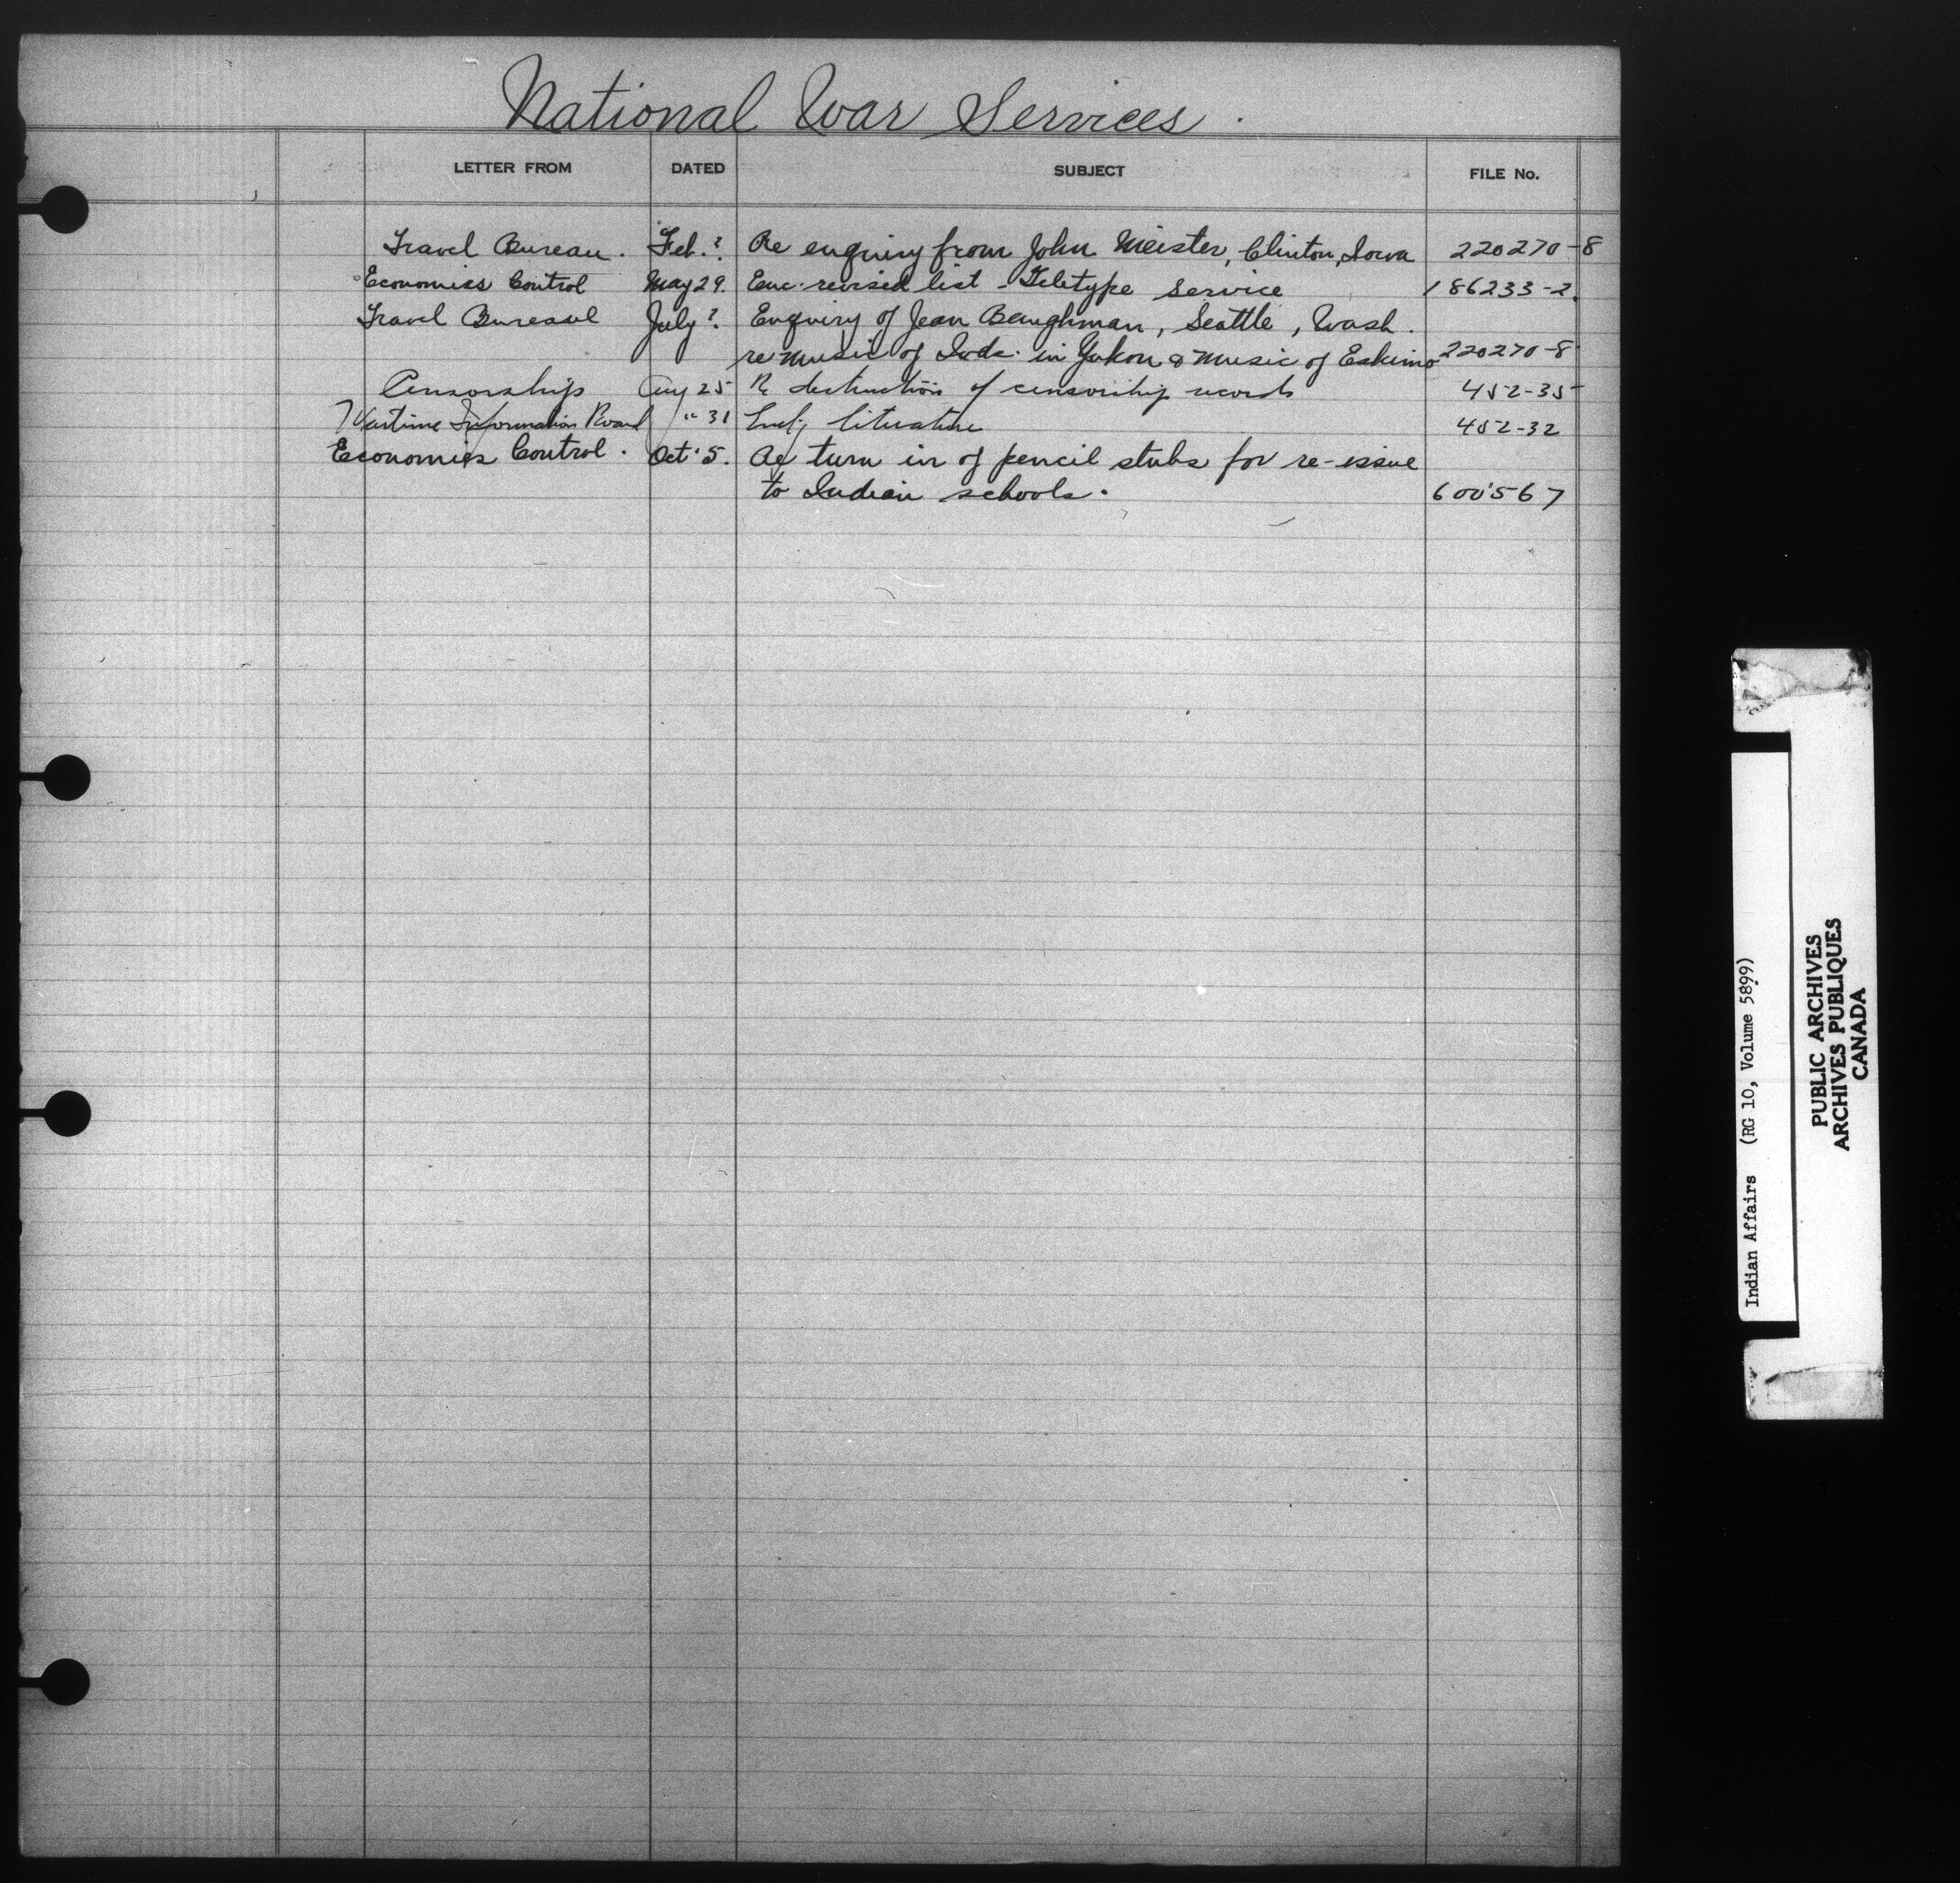 National War Services.
LETTER FROM DATED SUBJECT FILE No.
Travel Bureau. Feb. ? Re enquiry from John Meister, Clinton, Iowa 220270-8
Economics Control May 29. Enc. revised list - Teletype Service 186233-2.
Travel Bureau July ? Enquiry of Jean Baughman, Seattle, Wash.
re music of Inds. in Yukon & Music of Eskimo 220270-8
Censorship Aug 25 Re destruction of censorship records 452-35
Wartime Information Board " 31 literature 452-32
Economics Control. Oct. 5. Re turn in of pencil stubs for re-issue
to Indian schools. 600567
Indian Affairs (RG 10, Volume 5899)
PUBLIC ARCHIVES
ARCHIVES PUBLIQUES
CANADA